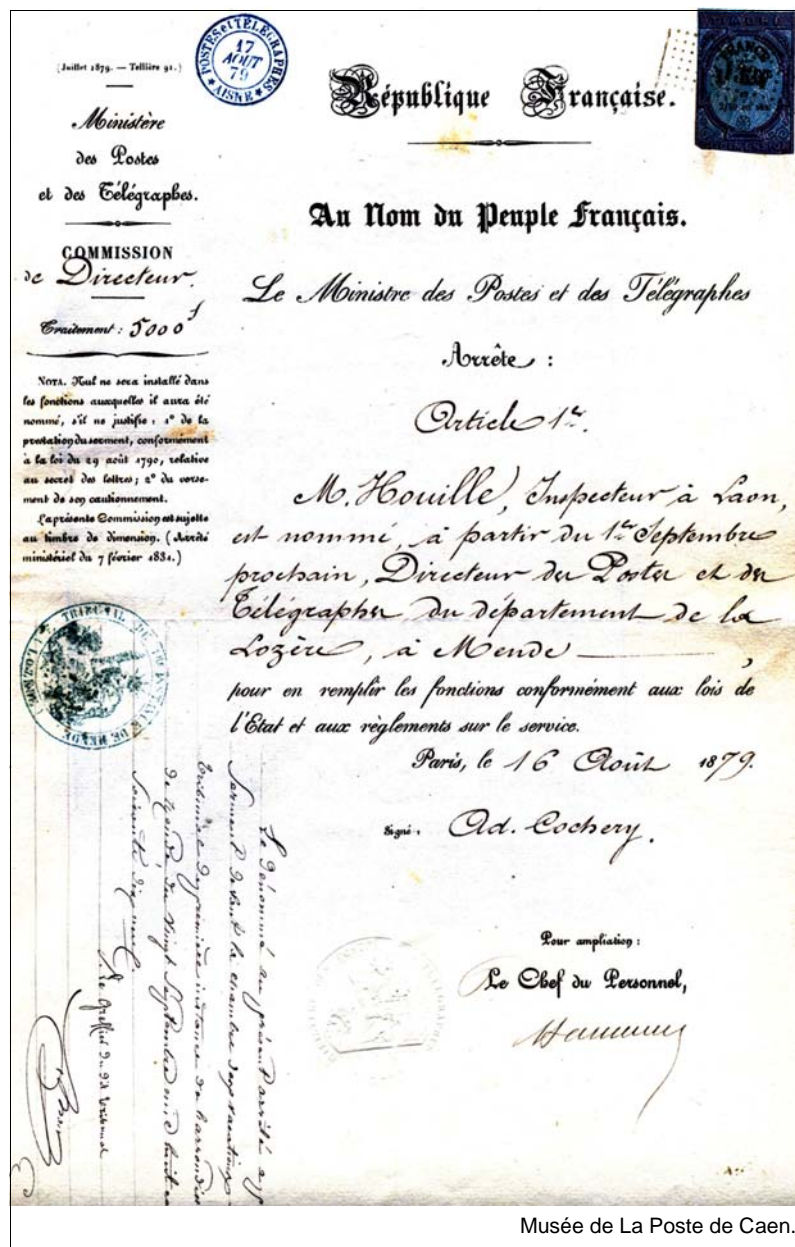 (Juillet 1879. — Tellière 91.)
POSTES et TÉLÉGRAPHES
17
AOUT
79
AISNE
TIMBRE
FRANCE
République Française.
Ministère
des Postes
et des Télégraphes.
COMMISSION
de Directeur.
Traitement : 5000 f
NOTA. Nul ne sera installé dans
les fonctions auxquelles il aura été
nommé, s'il ne justifie : 1° de la
prestation du serment, conformément
à la loi du 29 août 1790, relative
au secret des lettres ; 2° du verse-
ment de son cautionnement.
La présente Commission est sujette
au timbre de dimension. (Arrêté
ministériel du 7 février 1831.)
Au Nom du Peuple Français.
Le Ministre des Postes et des Télégraphes
Arrête :
Article 1er.
M. Houille, Inspecteur à Laon,
est nommé, à partir du 1er Septembre
prochain, Directeur des Postes et des
Télégraphes du département de la
Lozère, à Mende
pour en remplir les fonctions conformément aux lois de
l'État et aux règlements sur le service.
Paris, le 16 Août 1879.
Signé : Ad. Cochery.
Pour ampliation :
Le Chef du Personnel,
TRIBUNAL DE 1RE INSTANCE DE MENDE (LOZÈRE)
Le dénommé au présent arrêté a
serment devant la chambre des vacations
de première instance de
de Mende du vingt Septembre mil huit cent
soixante dix neuf.
Le Greffier du dit tribunal
Musée de La Poste de Caen.